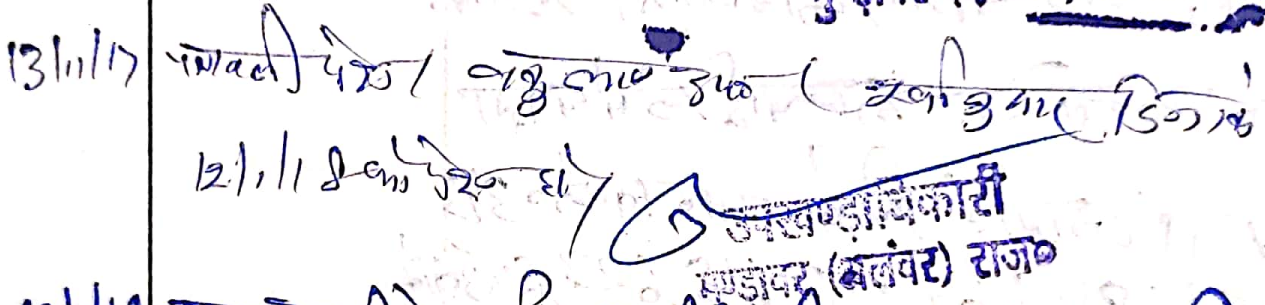 13/11/17 पत्रावली पेश। वकुलाय उप०। पूर्वानुसार दिनांक
12/1/18 को पेश हो।
उपखण्डाधिकारी
मुण्डावर (अलवर) राज०